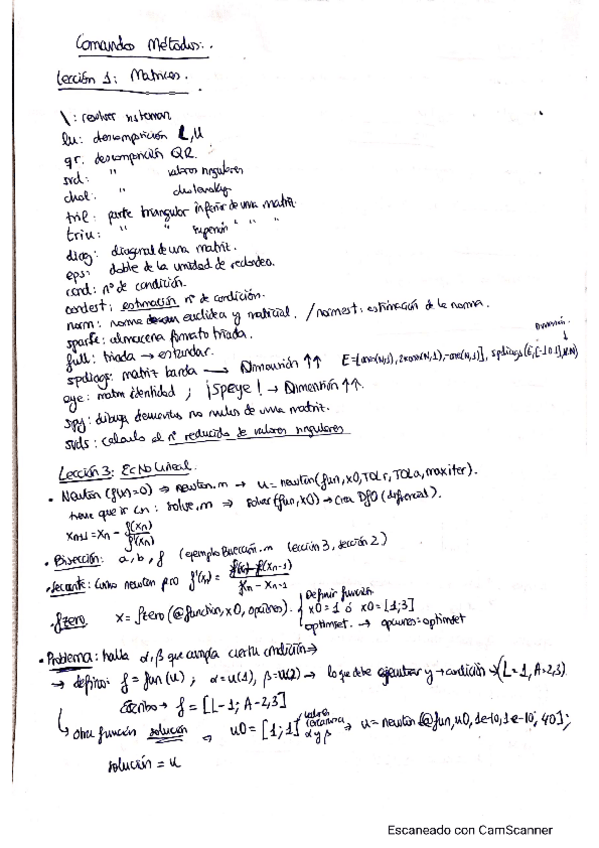 Comandos Métodos:.
Lección 1: Matrices.
\: resolver sistemas
lu: descomposición L,U
qr: descomposición QR.
svd: " valores singulares
chol: " cholevsky
tril: parte triangular inferior de una matriz.
triu: " " superior " " "
diag: diagonal de una matriz.
eps: doble de la unidad de redondeo.
cond: nº de condición.
condest: estimación nº de condición.
norm: norma euclidea y matricial. / normest: estimación de la norma.
sparse: almacena formato triada.
full: triada → estandar.
Dimensión.
spdiags: matriz banda → Dimensión ↑↑ E=[ones(N,1), 2*ones(N,1), -ones(N,1)], spdiags(E,[-1 0 1],N,N)
eye: matriz identidad ; ¡speye! → Dimensión ↑↑.
spy: dibuja elementos no nulos de una matriz.
svds: calcula el nº reducido de valores singulares
Lección 3: Ec No Lineal.
• Newton (f(u)=0) ⇒ newton.m → u = newton(fun, x0, TOLr, TOLa, maxiter).
tiene que ir en: solve.m ⇒ solver(fun, x0) → Crea DfO (diferencial).
xn+1 = xn - f(xn)/f'(xn)
• Bisección: a, b, f (ejemplo Bisección.m Lección 3, sección 2)
• Secante: como newton pero f'(xn) =
fn - xn-1
• fzero. x = fzero(@function, x0, opciones).
Definir función
x0 = 1 ó x0 = [1;3]
optimset. → opciones = optimset
• Problema: halla α, β que cumpla cierta condición →
→ defino: f = fun(u) ; α = u(1), β = u(2) → lo que debe ejecutar y → condición → (L=1, A=2,3)
Escribo → f = [L-1; A-2,3]
↳ otra función solución → u0 = [1;1] valores α y β → u = newton(@fun, u0, 1e-10, 1e-10, 40];
solución = u
Escaneado con CamScanner